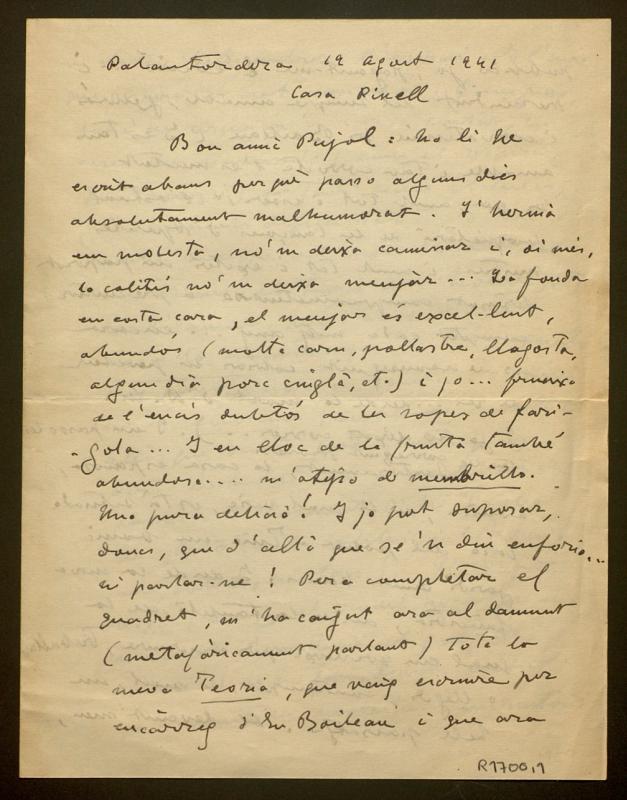 Palautordera 19 Agost 1941
Casa Rixell
Bon amic Pujol: no li he
escrit abans perquè passo alguns dies
absolutament malhumorat. L'hernia
em molesta, no'm deixa caminar i, ai més,
la colitis no'm deixa menjar... La fonda
em costa cara, el menjar és excel·lent,
abundós (molta carn, pollastre, llagosta,
algun dia porc cinglà, etc.) i jo...
de l'encís dubtós de les sopes de fari-
gola... I en lloc de la fruita també
abundosa.... m'atipo de membrillo.
Una pura delicia! I ja pot suposar,
doncs, que d'allò que se'n diu eufòria...
ni parlar-ne! Per a completar el
quadret, m'ha caigut ara al damunt
(metafòricament parlant) tota la
meva Teoria, que vaig escriure per
encàrreg d'En Boileau i que ara
R1700,1